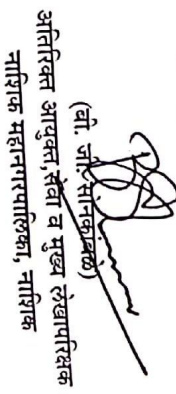 (बी. जी. सोनकांबळे)
अतिरिक्त आयुक्त,सेवा व मुख्य लेखापरिक्षक
नाशिक महानगरपालिका, नाशिक